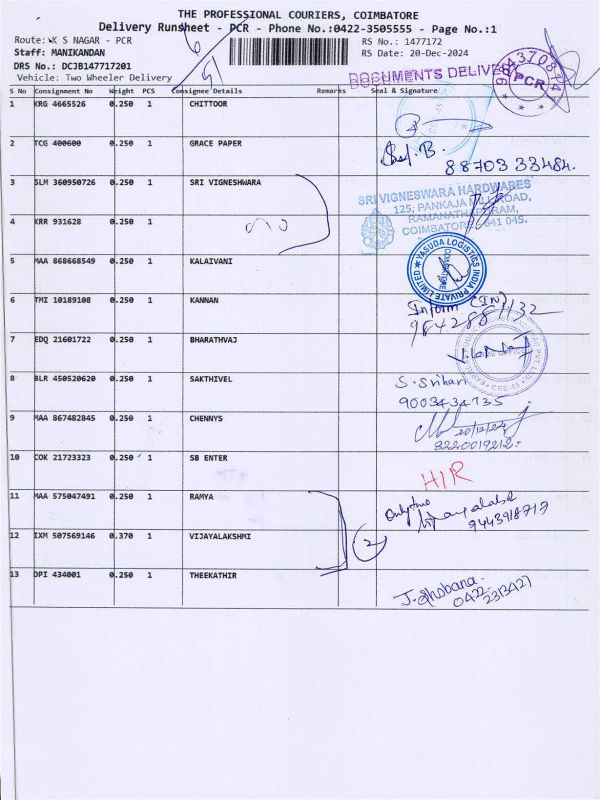 THE PROFESSIONAL COURIERS, COIMBATORE
Delivery Runsheet - PCR - Phone No.:0422-3505555 - Page No.:1
Route: K S NAGAR - PCR
Staff: MANIKANDAN
DRS No.: DCJB147717201
Vehicle: Two Wheeler Delivery
RS No.: 1477172
RS Date: 20-Dec-2024
DOCUMENTS DELIVE
984370814
PCR
S No Consignment No Weight PCS Consignee Details Remarks Seal & Signature
1 KRG 4665526 0.250 1 CHITTOOR
2 TCG 400600 0.250 1 GRACE PAPER
B.
88703 33484.
3 SLM 360950726 0.250 1 SRI VIGNESHWARA
SRI VIGNESWARA HARDWARES
125, PANKAJA MILL ROAD,
RAMANATHAPURAM,
COIMBATORE - 641 045.
4 KRR 931628 0.250 1
YASUDA LOGISTICS INDIA PRIVATE LIMITED
COIMBATORE
5 MAA 868668549 0.250 1 KALAIVANI
6 TMI 10189108 0.250 1 KANNAN
Inform (IN)
9842881132
7 EDQ 21601722 0.250 1 BHARATHVAJ
8 BLR 450520620 0.250 1 SAKTHIVEL
S. Srihari
9003434735
9 MAA 867482845 0.250 1 CHENNYS
20/12/24
8220019212.
10 COK 21723323 0.250 1 SB ENTER
HIR
11 MAA 575047491 0.250 1 RAMYA
9443918717
12 IXM 507569146 0.370 1 VIJAYALAKSHMI
2
13 DPI 434001 0.250 1 THEEKATHIR
J. Shobana.
0422-2313421